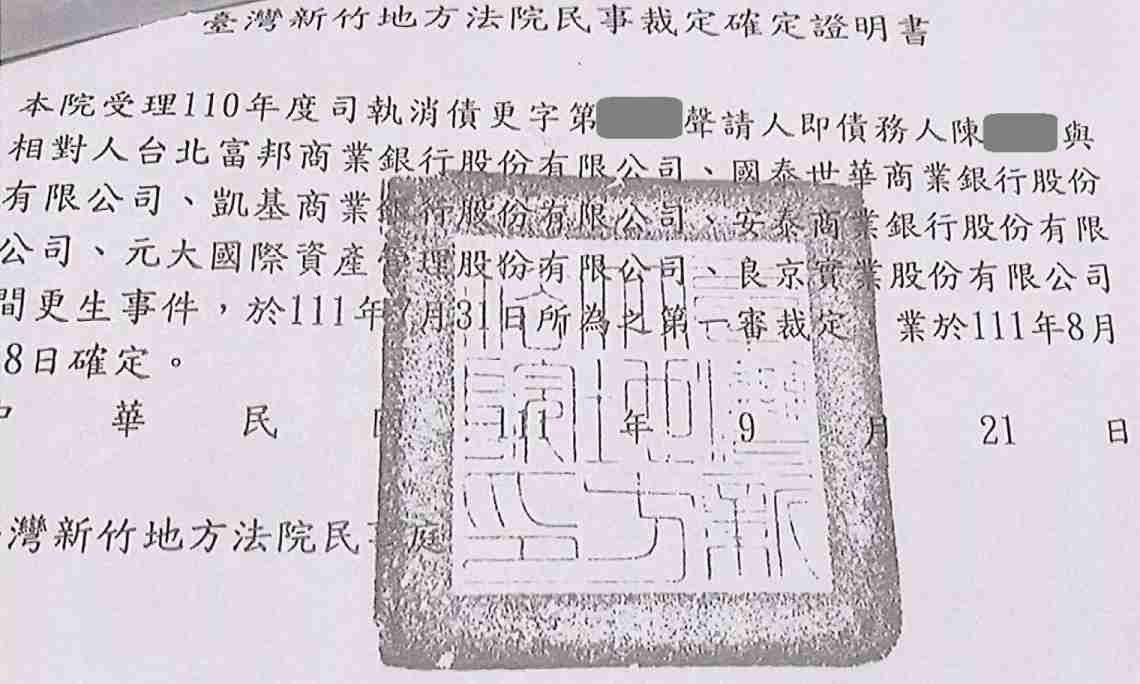 臺灣新竹地方法院民事裁定確定證明書
本院受理110年度司執消債更字第 聲請人即債務人陳 與
相對人台北富邦商業銀行股份有限公司、國泰世華商業銀行股份
有限公司、凱基商業銀行股份有限公司、安泰商業銀行股份有限
公司、元大國際資產管理股份有限公司、良京實業股份有限公司
間更生事件，於111年7月31日所為之第一審裁定，業於111年8月
8日確定。
中 華 民 國 111 年 9 月 21 日
灣新竹地方法院民事庭